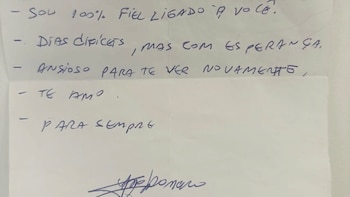 - SOU 100% FIEL LIGADO À VOCÊ.
- DIAS DIFÍCEIS, MAS COM ESPERANÇA.
- ANSIOSO PARA TE VER NOVAMENTE,
- TE AMO.
- PARA SEMPRE